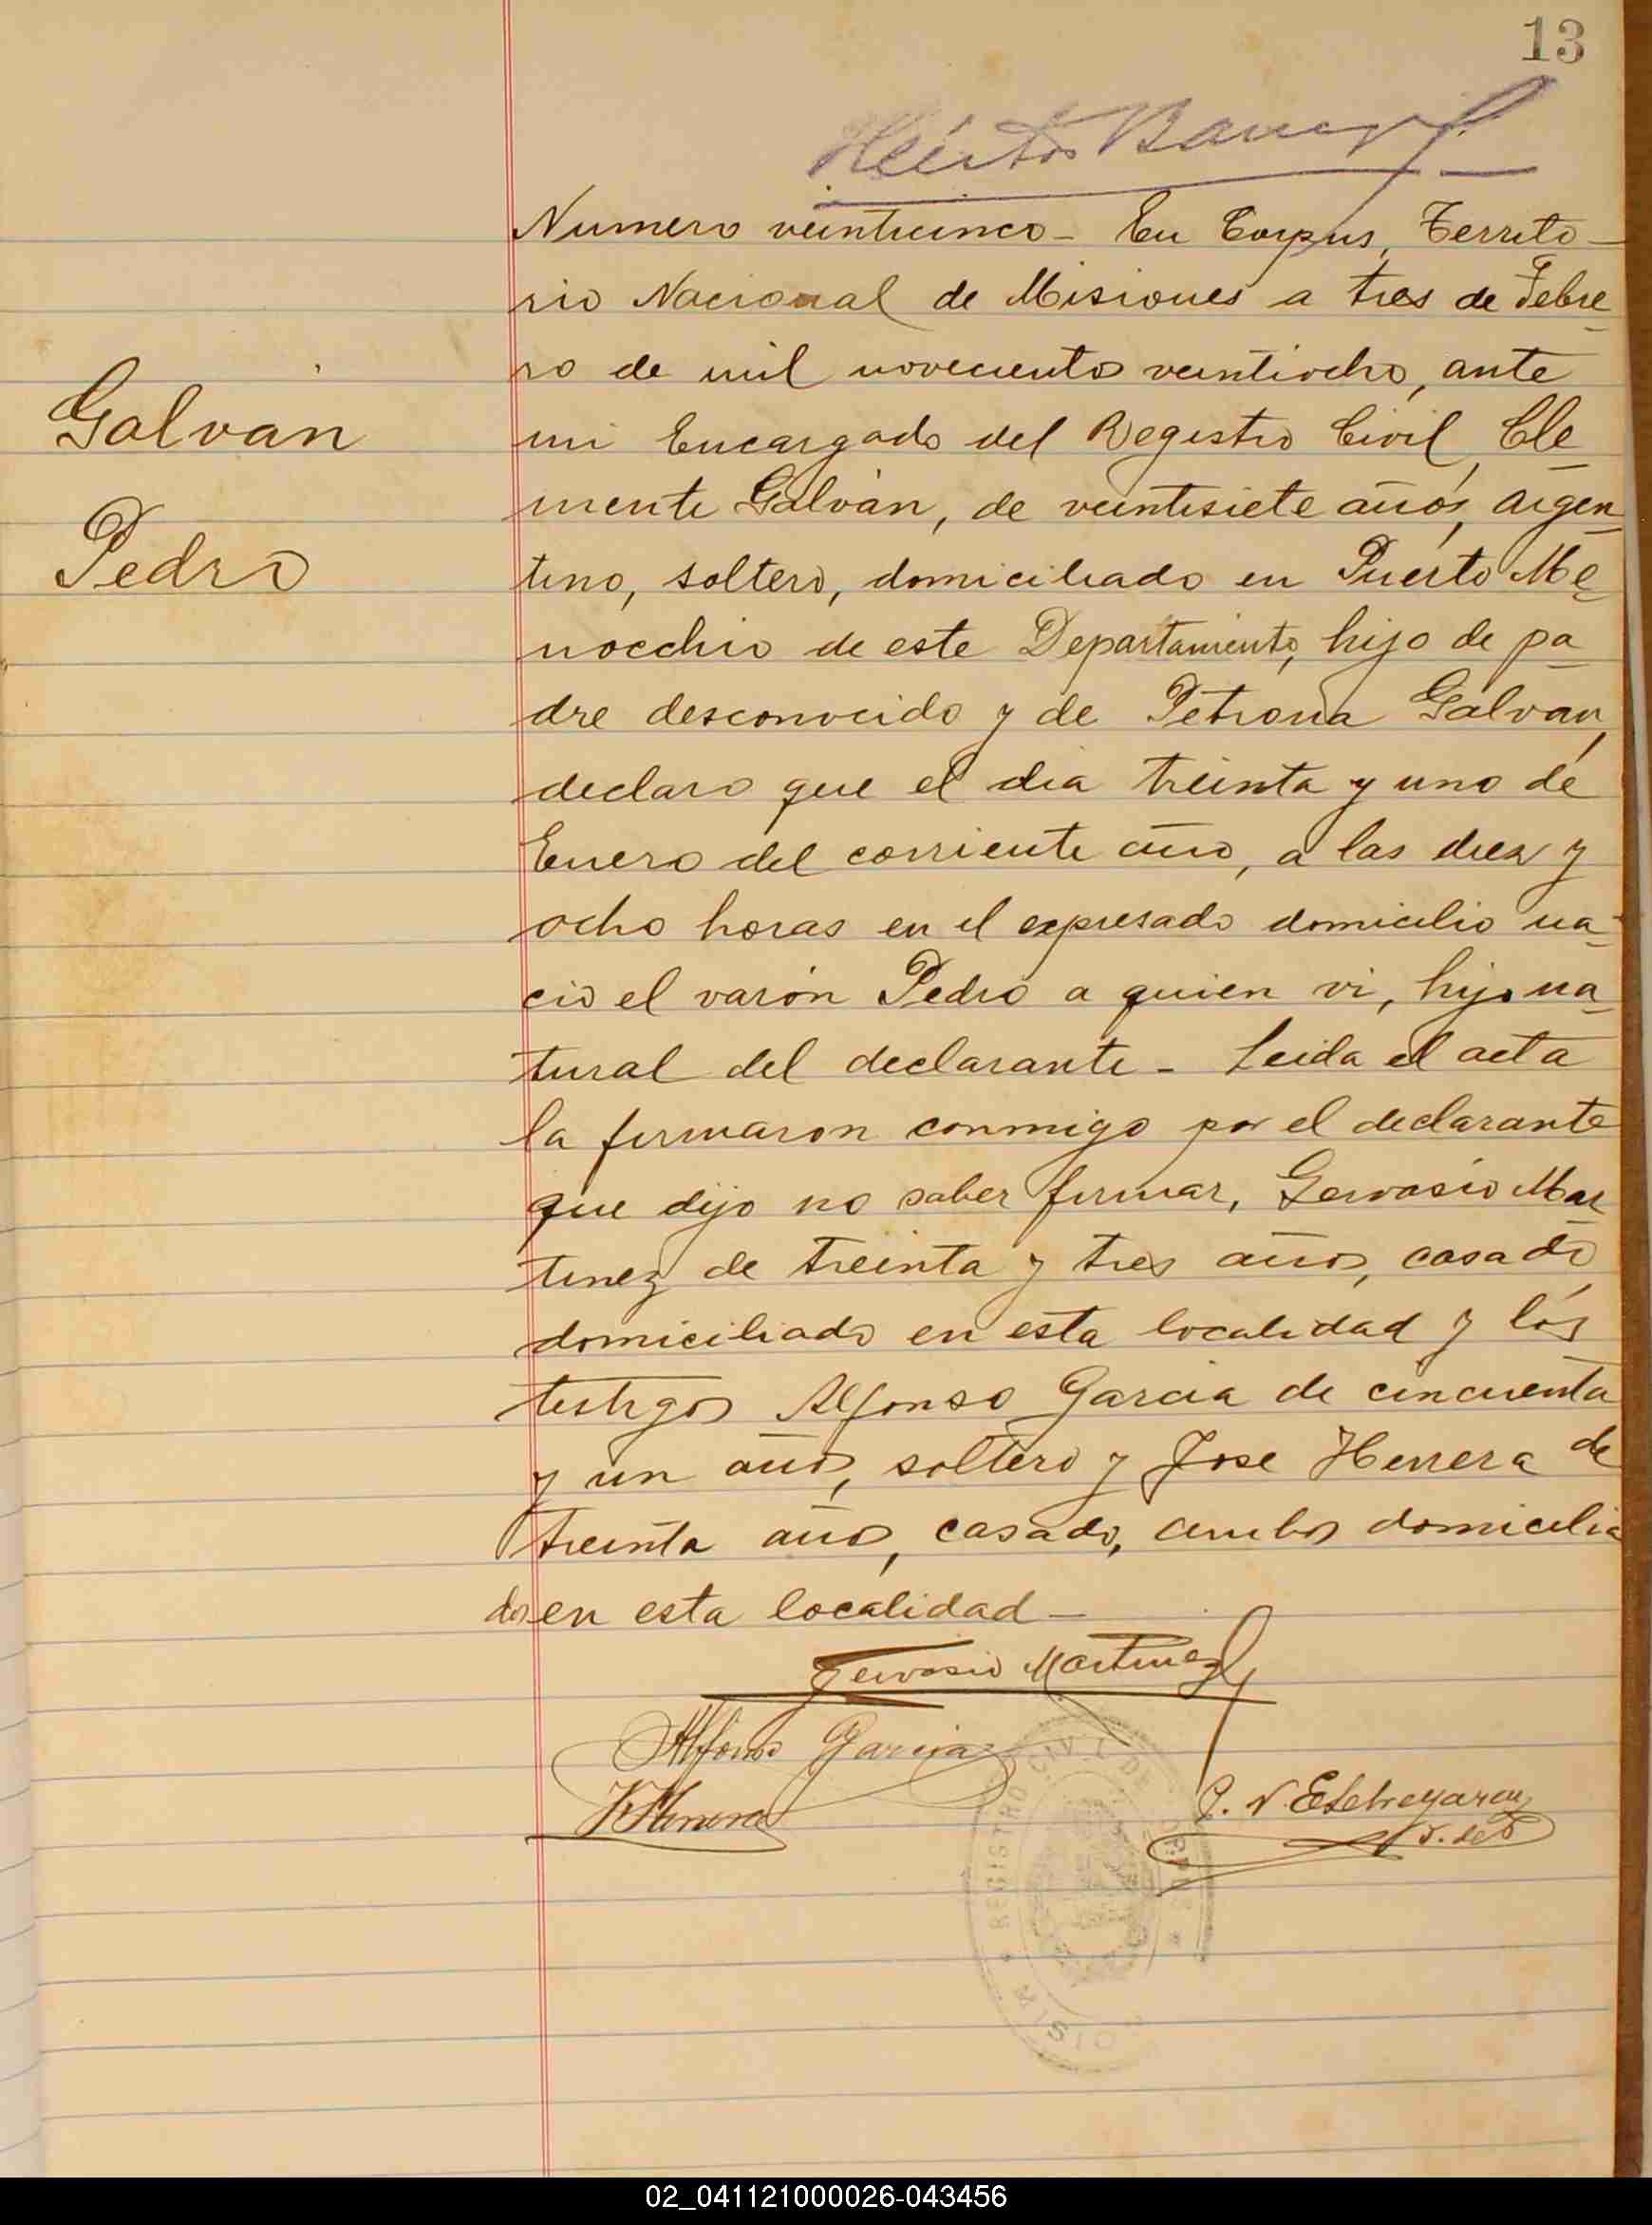 13
Galván
Pedro
Numero veinticinco - En Corpus, Territo-
rio Nacional de Misiones a tres de Febre-
ro de mil novecientos veintiocho, ante
mi Encargado del Registro Civil, Cle-
mente Galván, de veintisiete años, argen-
tino, soltero, domiciliado en Puerto Me-
nocchio de este Departamento, hijo de pa-
dre desconocido y de Petrona Galvan,
declaro que el dia treinta y uno de
Enero del corriente año, a las diez y
ocho horas en el expresado domicilio na-
ció el varón Pedro a quien vi, hijo na-
tural del declarante - Leida el acta
la firmaron conmigo por el declarante
que dijo no saber firmar, Gervasio Mar-
tinez de treinta y tres años, casado
domiciliado en esta localidad y los
testigos Alfonso Garcia de cincuenta
y un años, soltero y Jose Herrera de
treinta años, casado, ambos domicilia
dos en esta localidad -
Gervasio Martinez
Alfonso Garcia
J Herrera
P. N. Etchegaray
J. de P
REGISTRO CIVIL DE CORPUS
MISIO
02_041121000026-043456